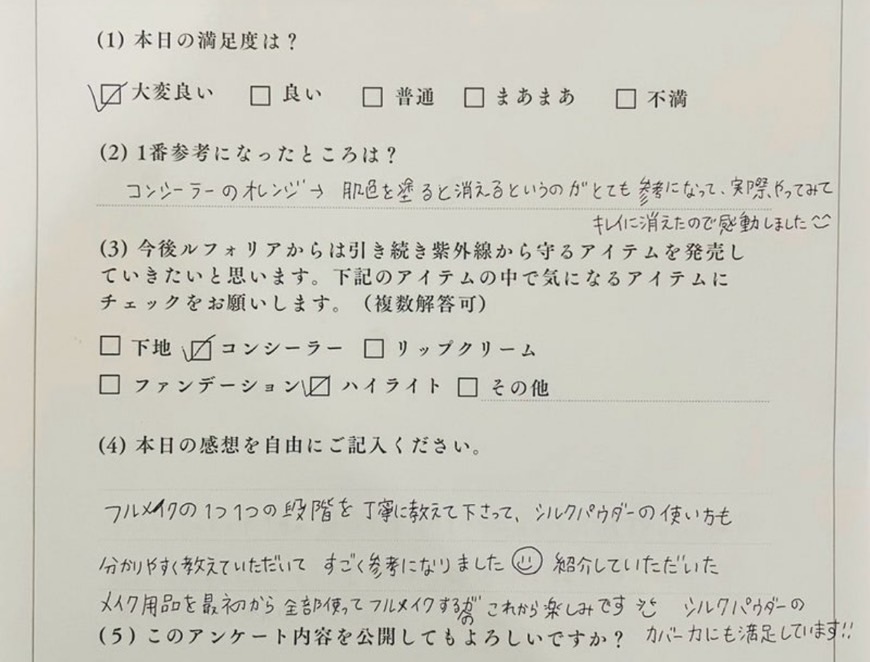 (1) 本日の満足度は?
☑ 大変良い □ 良い □ 普通 □ まあまあ □ 不満
(2) 1番参考になったところは?
コンシーラーのオレンジ→ 肌色を塗ると消えるというのがとても参考になって、実際やってみて
キレイに消えたので感動しました
(3) 今後ルフォリアからは引き続き紫外線から守るアイテムを発売し
ていきたいと思います。下記のアイテムの中で気になるアイテムに
チェックをお願いします。(複数解答可)
□ 下地 ☑ コンシーラー □ リップクリーム
□ ファンデーション ☑ ハイライト □ その他
(4) 本日の感想を自由にご記入ください。
フルメイクの1つ1つの段階を丁寧に教えて下さって、シルクパウダーの使い方も
分かりやすく教えていただいて すごく参考になりました 紹介していただいた
メイク用品を最初から全部使ってフルメイクするのが これから楽しみです シルクパウダーの
カバー力にも満足しています!!
(5) このアンケート内容を公開してもよろしいですか?